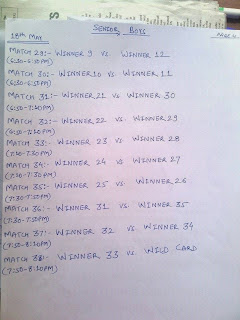 SENIOR BOYS
18th MAY
MATCH 29:- WINNER 9 VS. WINNER 12
MATCH 30:- WINNER 10 VS WINNER 11
MATCH 31:- WINNER 21 VS WINNER 30
MATCH 32:- WINNER 22 VS WINNER 29
MATCH 33:- WINNER 23 VS WINNER 28
MATCH 34:- WINNER 24 VS WINNER 27
(7:10-7:30PM)
MATCH 35:- WINNER 25 VS WINNER 26
(7:30-7:50PM)
MATCH 36:- WINNER 31 VS. WINNER 35
(7:30-7:50PM)
MATCH 37:- WINNER 32 VS WINNER 34
(7:50-8:10PM)
MATCH 38:- WINNER 33 VS. WILD CARD
(7:50-8:10PM)